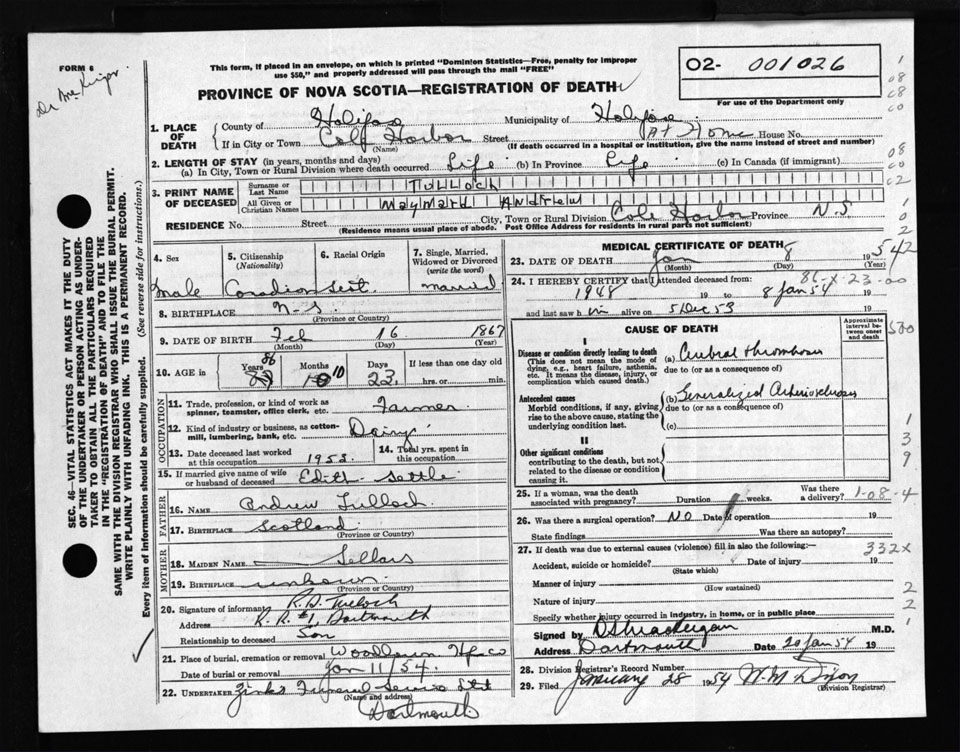 FORM 6
This form, if placed in an envelope, on which is printed "Dominion Statistics—Free, penalty for improper
use $50," and properly addressed will pass through the mail "FREE"
PROVINCE OF NOVA SCOTIA—REGISTRATION OF DEATH
O2- 001026
For use of the Department only
1. PLACE OF DEATH
County of Halifax Municipality of Halifax
If in City or Town Cole Harbor Street At Home House No.
(Name) (If death occurred in a hospital or institution, give the name instead of street and number)
2. LENGTH OF STAY (in years, months and days)
(a) In City, Town or Rural Division where death occurred Life (b) In Province Life (c) In Canada (if immigrant)
3. PRINT NAME OF DECEASED
Surname or Last Name Tulloch
All Given or Christian Names Maynard Andrew
RESIDENCE No. Street City, Town or Rural Division Cole Harbor Province N.S
(Residence means usual place of abode. Post Office Address for residents in rural parts not sufficient)
4. Sex
Male
5. Citizenship
(Nationality)
Canadian
6. Racial Origin
Scot.
7. Single, Married, Widowed or Divorced
(write the word)
Married
8. BIRTHPLACE N-S.
(Province or Country)
9. DATE OF BIRTH Feb 16 1867
(Month) (Day) (Year)
10. AGE in
Years 86
Months 10
Days 23
If less than one day old
hrs. or min.
OCCUPATION
11. Trade, profession, or kind of work as
spinner, teamster, office clerk, etc. Farmer
12. Kind of industry or business, as cotton-
mill, lumbering, bank, etc. Dairy
13. Date deceased last worked
at this occupation 1953.
14. Total yrs. spent in
this occupation
15. If married give name of wife
or husband of deceased Edith Settle
FATHER
16. Name Andrew Tulloch
17. Birthplace Scotland
(Province or Country)
MOTHER
18. MAIDEN NAME Sellars
19. BIRTHPLACE unknown
(Province or Country)
20. Signature of informant R.A. Tulloch
Address R.R. #1, Dartmouth
Relationship to deceased Son
21. Place of burial, cremation or removal Woodlawn Hfx co
Date of burial or removal Jan 11/54.
22. UNDERTAKER Zinks Funeral Service Ltd
(Name and address)
Dartmouth
MEDICAL CERTIFICATE OF DEATH
23. DATE OF DEATH Jan 8 1954
(Month) (Day) (Year)
24. I HEREBY CERTIFY that I attended deceased from:
1948 19 to 8 Jan 54 19
and last saw h im alive on 5 Dec 53
CAUSE OF DEATH
Approximate interval between onset and death
I
Disease or condition directly leading to death
(This does not mean the mode of
dying, e.g., heart failure, asthenia,
etc. It means the disease, injury, or
complication which caused death.)
(a) Cerebral thrombosis
due to (or as a consequence of)
Antecedent causes
Morbid conditions, if any, giving
rise to the above cause, stating the
underlying condition last.
(b) Generalized Arteriosclerosis
due to (or as a consequence of)
(c)
II
Other significant conditions
contributing to the death, but not
related to the disease or condition
causing it.
25. If a woman, was the death
associated with pregnancy? Duration weeks. Was there
a delivery?
26. Was there a surgical operation? No Date of operation 19
State findings Was there an autopsy?
27. If death was due to external causes (violence) fill in also the following:—
Accident, suicide or homicide? Date of injury 19
(State which)
Manner of injury
(How sustained)
Nature of injury
Specify whether injury occurred in industry, in home, or in public place
Signed by M.D.
Address Dartmouth Date 20 Jan 54 19
28. Division Registrar's Record Number
29. Filed January 28 1954 W.M. Dixon
(Division Registrar)
86-x-23-00
1-08-4
332x
SEC. 46—VITAL STATISTICS ACT MAKES IT THE DUTY
OF THE UNDERTAKER OR PERSON ACTING AS UNDER-
TAKER TO OBTAIN ALL THE PARTICULARS REQUIRED
IN THE "REGISTRATION OF DEATH" AND TO FILE THE
SAME WITH THE DIVISION REGISTRAR WHO SHALL ISSUE THE BURIAL PERMIT.
WRITE PLAINLY WITH UNFADING INK. THIS IS A PERMANENT RECORD.
Every item of information should be carefully supplied. (See reverse side for instructions.)